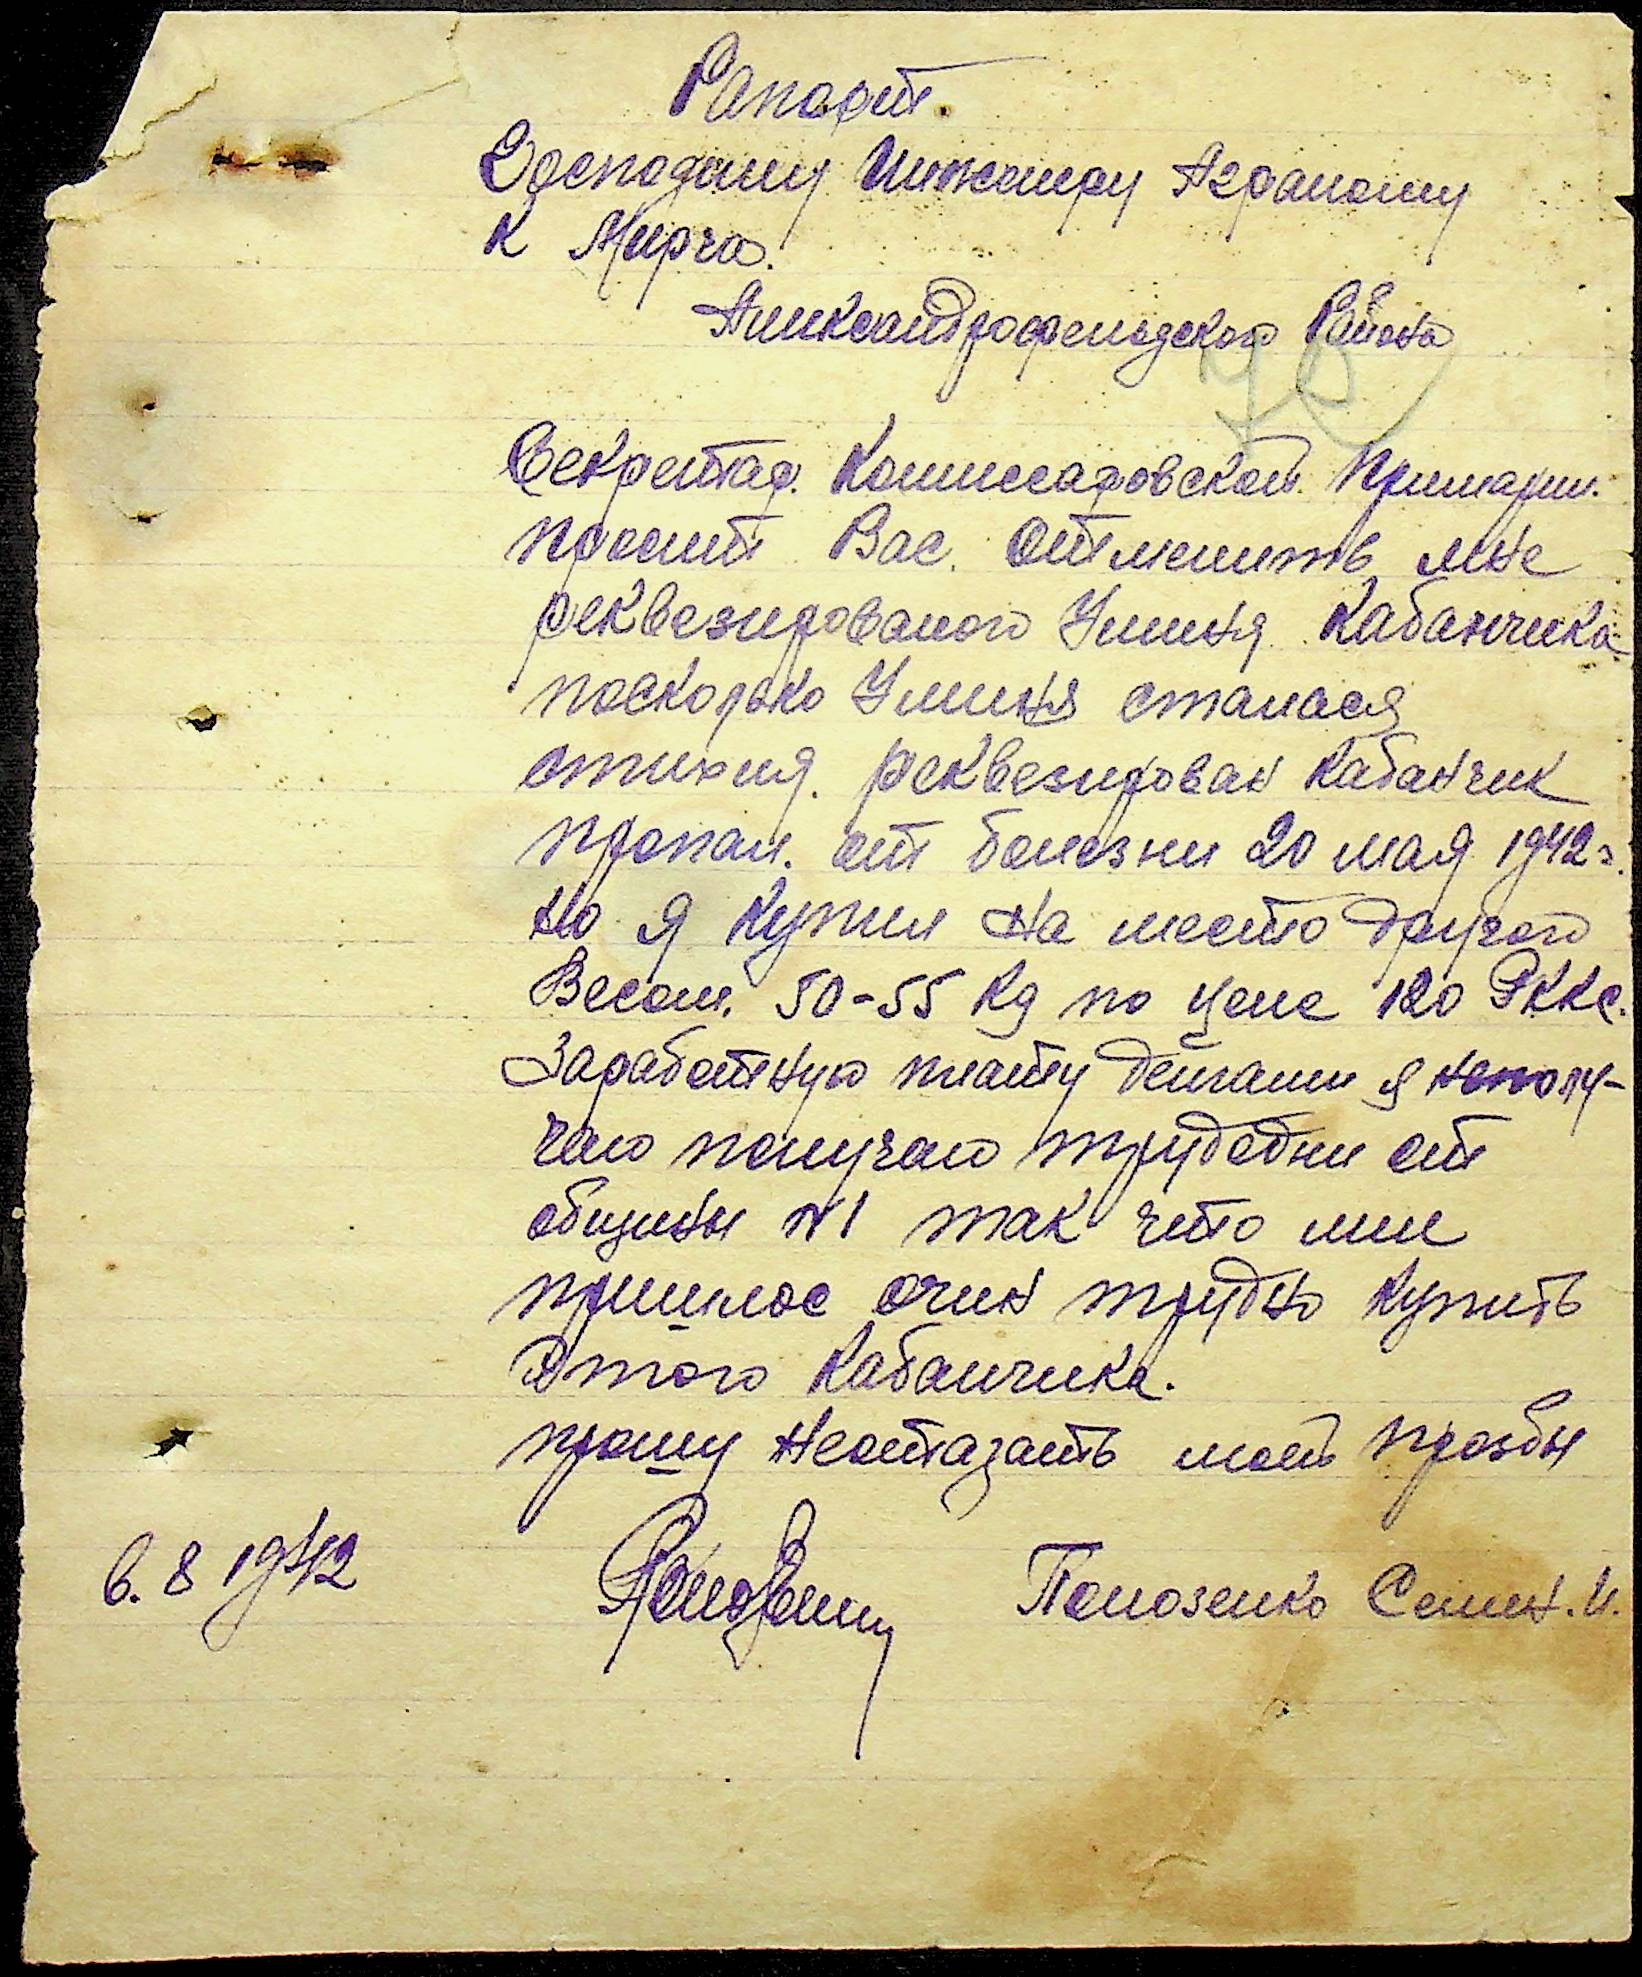 Рапорт.
Госродину Инженеру Аграному
К Мирча.
Аликсандрофельдского Района
Секретар. Комиссаровской Примарии.
просит Вас. Отменить мне
реквезированого Уминя Кабанчика
поскорько Уминя сталася
стихия. реквезирован кабанчик
пропал. от болезни 20 мая 1942 г.
но я купил на место другого
Весом. 50-55 Кg по цене 120 РККС.
Заработную плату деигами я неполу-
чаю получаю трудодни от
общины №1 так что мне
пришлос очин трудно купить
этого Кабанчика.
прошу неотказать моей прозбы
6. 8 1942 Полозенко Семен. И.